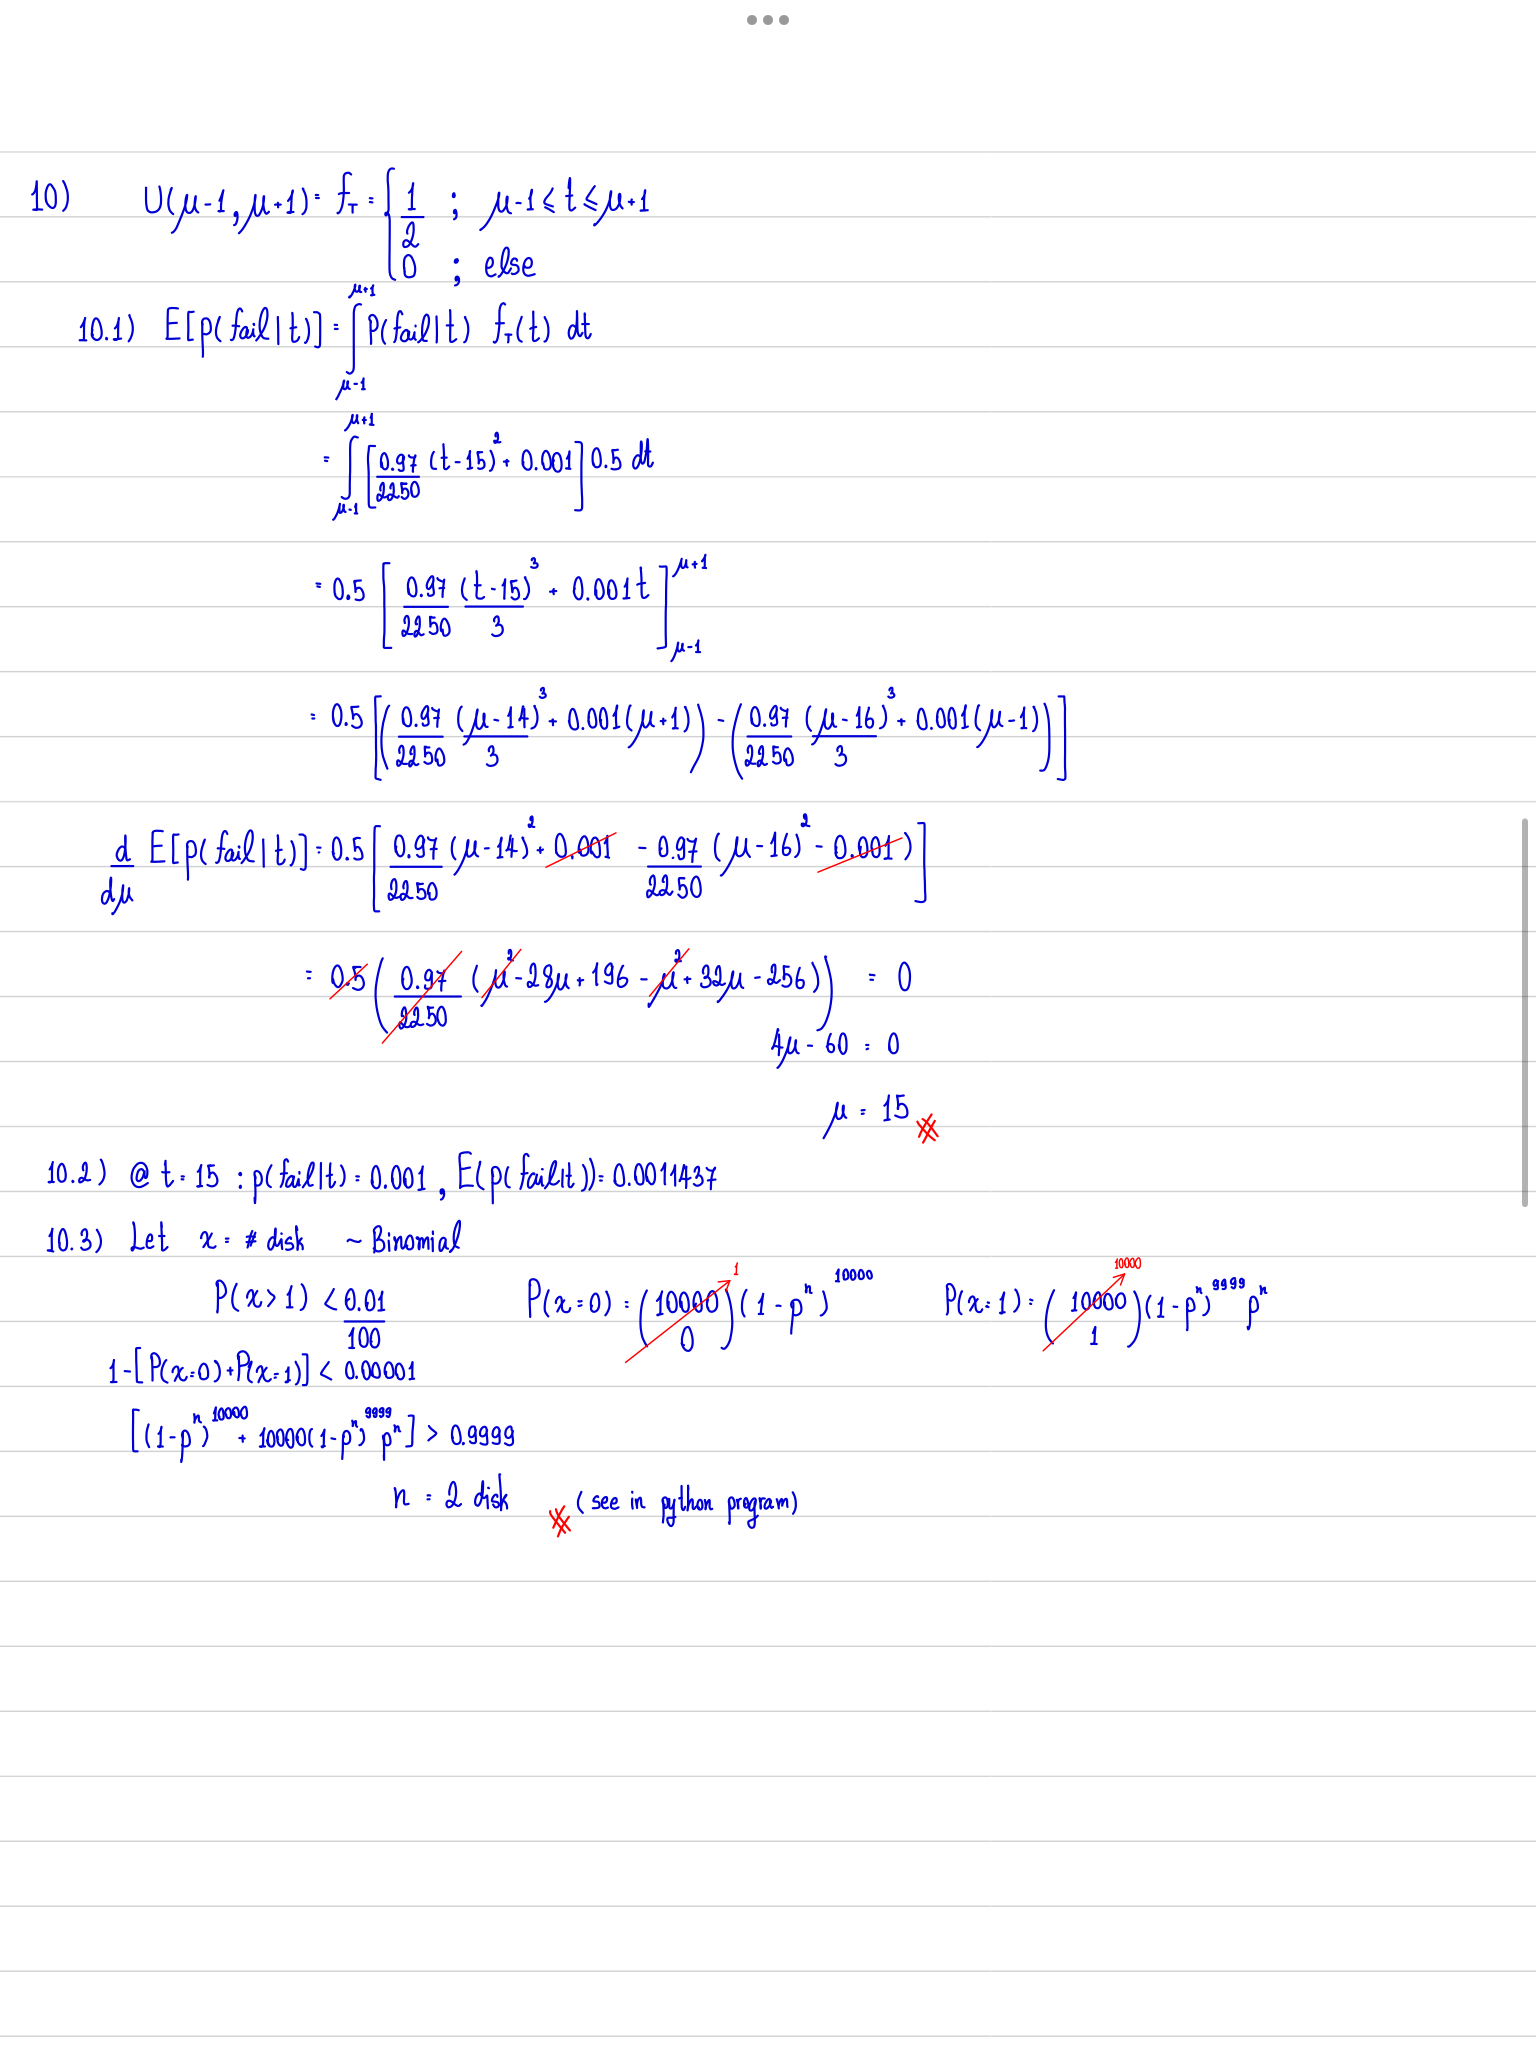 10) U(μ-1, μ+1) = f_T = { 1/2 ; μ-1 ≤ t ≤ μ+1
0 ; else
10.1) E[p(fail|t)] = ∫_{μ-1}^{μ+1} P(fail|t) f_T(t) dt
= ∫_{μ-1}^{μ+1} [0.97/2250 (t-15)^2 + 0.001] 0.5 dt
= 0.5 [0.97/2250 (t-15)^3/3 + 0.001t]_{μ-1}^{μ+1}
= 0.5 [(0.97/2250 (μ-14)^3/3 + 0.001(μ+1)) - (0.97/2250 (μ-16)^3/3 + 0.001(μ-1))]
d/dμ E[p(fail|t)] = 0.5 [0.97/2250 (μ-14)^2 + 0.001 - 0.97/2250 (μ-16)^2 - 0.001)]
= 0.5 (0.97/2250 (μ^2 - 28μ + 196 - μ^2 + 32μ - 256)) = 0
4μ - 60 = 0
μ = 15
10.2) @ t = 15 : p(fail|t) = 0.001 , E(p(fail|t)) = 0.0011437
10.3) Let x = # disk ~ Binomial
P(x>1) < 0.01/100 P(x=0) = (10000 0) 1 (1-p^n)^10000 P(x=1) = (10000 1) 10000 (1-p^n)^9999 p^n
1-[P(x=0)+P(x=1)] < 0.00001
[(1-p^n)^10000 + 10000(1-p^n)^9999 p^n] > 0.9999
n = 2 disk (see in python program)